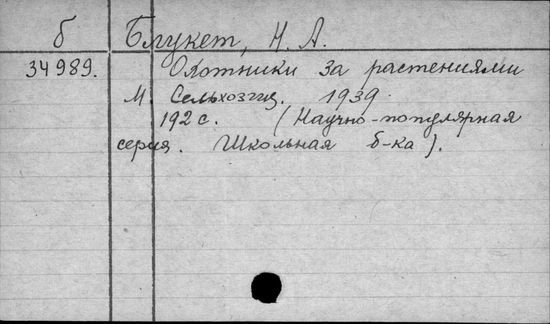 б Блукет, Н. А.
34989. Охотники за растениями
М. Сельхозгиз, 1939.
192 с. (Научно-популярная
серия. Школьная б-ка).